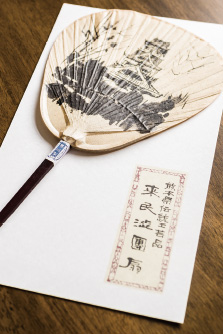 熊本県伝統工芸品
来民渋團扇